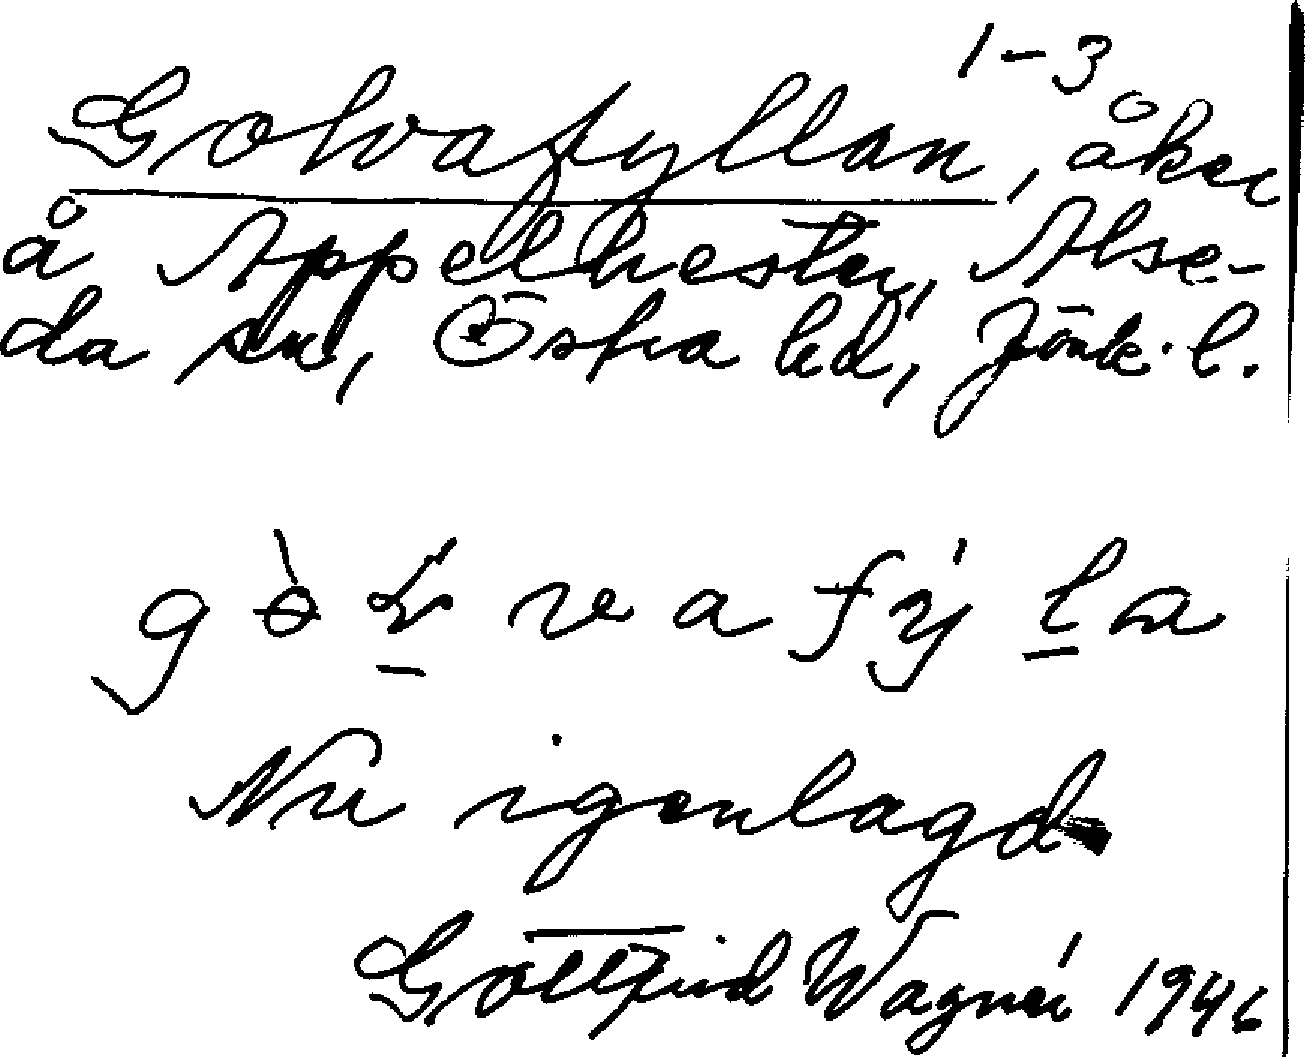 1-3
Golvafyllan, åker
å Appelhester, Alse-
da sn, Östra hd, Jönk. l.
gòɫvafýla
Nu igenlagd
Gottfrid Wagnér 1946